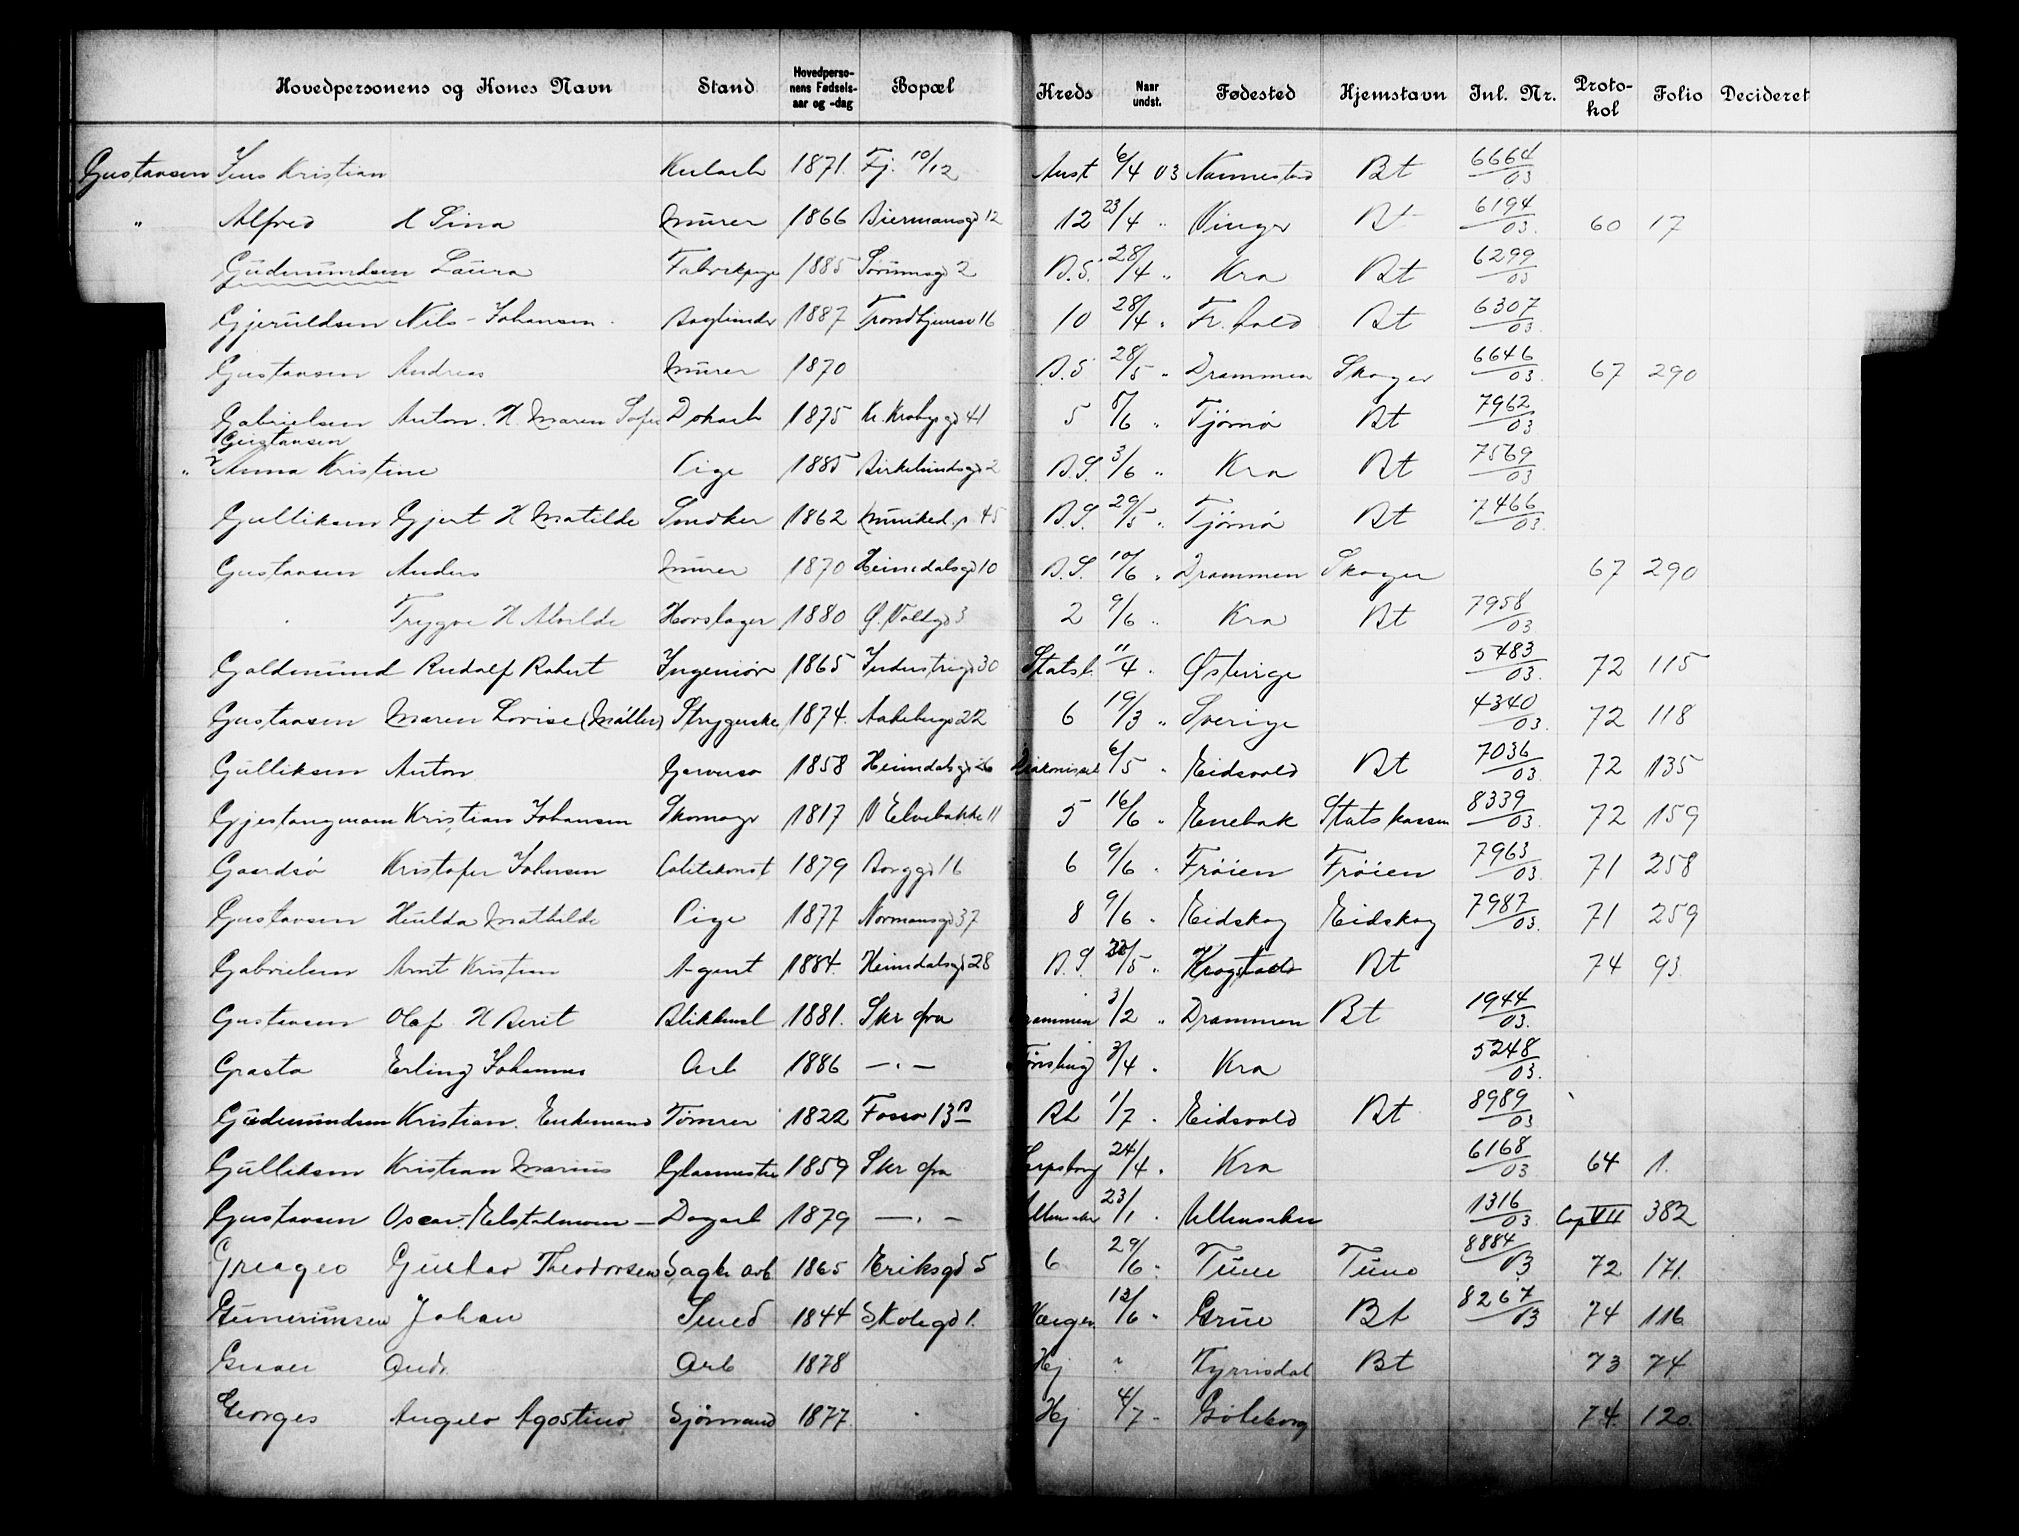 Hovedpersonens og Kones Navn Stand Hovedperso-nens Fødsels-aar og -dag Bopæl Kreds Naar undst. Fødested Hjemstavn Inl. Nr. Proto-kol Folio Decideret
Gustavsen Jens Kristian 1871. Fj. 10/12 Anst 6/4 03 Nannestad Bt 6664/03
" Alfred H Lina Murer 1866 Biermansgd 12 12 23/4 " Vinger Bt 6194/03 60 17
Gudmundsen Laura Fabrikpige 1885 Sørumsgd 2 B.S. 28/4 " Kra Bt 6299/03
Gjeruldsen Nils Johansen 1887 16 10 28/4 " Fr.hald Bt 6307/03
Gustavsen Andreas Murer 1870 B.S 28/5 " Drammen Skoger 6646/03 67 290
Gabrielsen Anton. H. Maren Sofie Dokarb 1875 41 5 8/6 " Tjømø Bt 7962/03
Gustavsen
" Anna Kristine Pige 1885 Birkelundsgd 2 B.S. 3/6 " Kra Bt 7569/03
Gulliksen Gjert H Matilde Snedker 1862 Munked.v 45 B.S. 29/5 " Tjømø Bt 7466/03
Gustavsen Anders Murer 1870 Heimdalsgd 10 B.S. 10/6 " Drammen Skoger 67 290
" Trygve H Alvilde Hovslager 1880 Ø. Voldgd 3 2 9/6 " Kra Bt 7958/03
Goldmund Rudolf Robert Ingeniør 1865 Industrigd 30 Statsb. 11/4 " Østerige 5483/03 72 115
Gustavsen Maren Lovise (Møller) Strygerske 1874. Aakebergv 22 6 19/3 " Sverige 4340/03 72 118
Gulliksen Anton Garveres 1858 Heimdalsgd 26 6/5 " Eidsvold Bt 7036/03 72 135
Gjestangmoen Kristian Johansen Skomager 1817 V Elvebakke 11 5 16/6 " Enebak Statskassen 8339/03 72 159
Gaardsø Kristofer Johnsen Politikonst 1879 Borggd 16 6 9/6 " Frøien Frøien 7963/03 71 258
Gustavsen Hulda Mathilde Pige 1877 Normansgd 37 8 9/6 " Eidskog Eidskog 7987/03 71 259
Gabrielsen Arnt Kristian Agent 1884. Heimdalsgd 28 B.S. /5 " Krogstad Bt 74 93
Gustavsen Olaf H Berit Blikkensl 1881. Skr fra Drammen 3/2 " Drammen Bt 1944/03
Grasto Erling Johannes Arb 1886 — " — Tønsberg 3/4 " Kra 5248/03
Gudmundsen Kristian. Enkemand Tømrer 1822 Fossv 13 B Bt 1/7 " Eidsvold Bt 8989/03
Gulliksen Kristian Marius Glasmester 1859 Skr fra Sarpsborg 24/4 " Kra 6168/03 64 1.
Gustavsen Oscar Elstadmoen — Dagarb 1879 — " — Ullensaker 23/1 " Ullensaker 1316/03 Cop VII 382
Greager Gustav Theodorsen Sagbr arb 1865 Eriksgd 5 6 29/6 " Tune Tune 8884/03 72 171.
Gunerussen Johan Smed 1844 Skolegd 1. 13/6 " Grue Bt 8267/03 74 116
Graaer Andr Arb 1878 Hj " Kyrrisdal Bt 73 74
Georges Angelo Agostino Sjømand 1877. Hj 4/7 " Gøteborg 74 120.